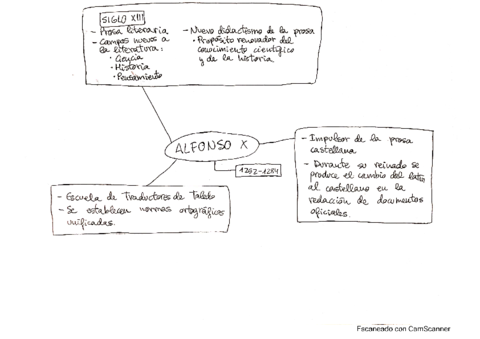 SIGLO XIII
- Prosa literaria
- Campos nuevos a
la literatura:
· Ciencia
· Historia
· Pensamiento
- Nuevo didactismo de la prosa
· Propósito renovador del
conocimiento científico
y de la historia
ALFONSO X
1252-1284
- Impulsor de la prosa
castellana.
- Durante su reinado se
produce el cambio del latín
al castellano en la
redacción de documentos
oficiales.
- Escuela de Traductores de Toledo
- Se establecen normas ortográficas
unificadas.
Escaneado con CamScanner